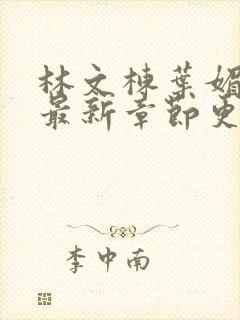 林文棟葉媚
最新章節更
李中南